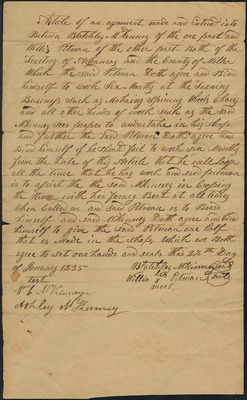 Article of an agreement made and Entered into
Between Blatchley McKinney of the one part and
Willis Pitman of the other part Both of the
Teretory of Arkansas and the County of Miller
Which the said Pitman Doth agree and Bind
himself to work Six Months at the
Business Such as Making Spinning Wheels Chairs
and all other kinds of work such as the said
McKinney Sees proper to undertake in his shop
and further the said Pitman Doth agree and
Bind himself if he should fail to work six Months
from the Date of this Article that he will loose
all the time that he has work and said pitman
is to assist the the said McKinney in Crossing
the River with his ferry Boat at all times
when called on and said Pitman is to Board
himself and said McKinney Doth agree and bind
himself to give the said Pitman one half
that is Made in the shop which we Both
agree to Set our hands and seals this 28th Day
of January 1835
Blatchley McKinney Seal
test
Willis his x mark Pitman Seal
McKinney
Ashley McKinney